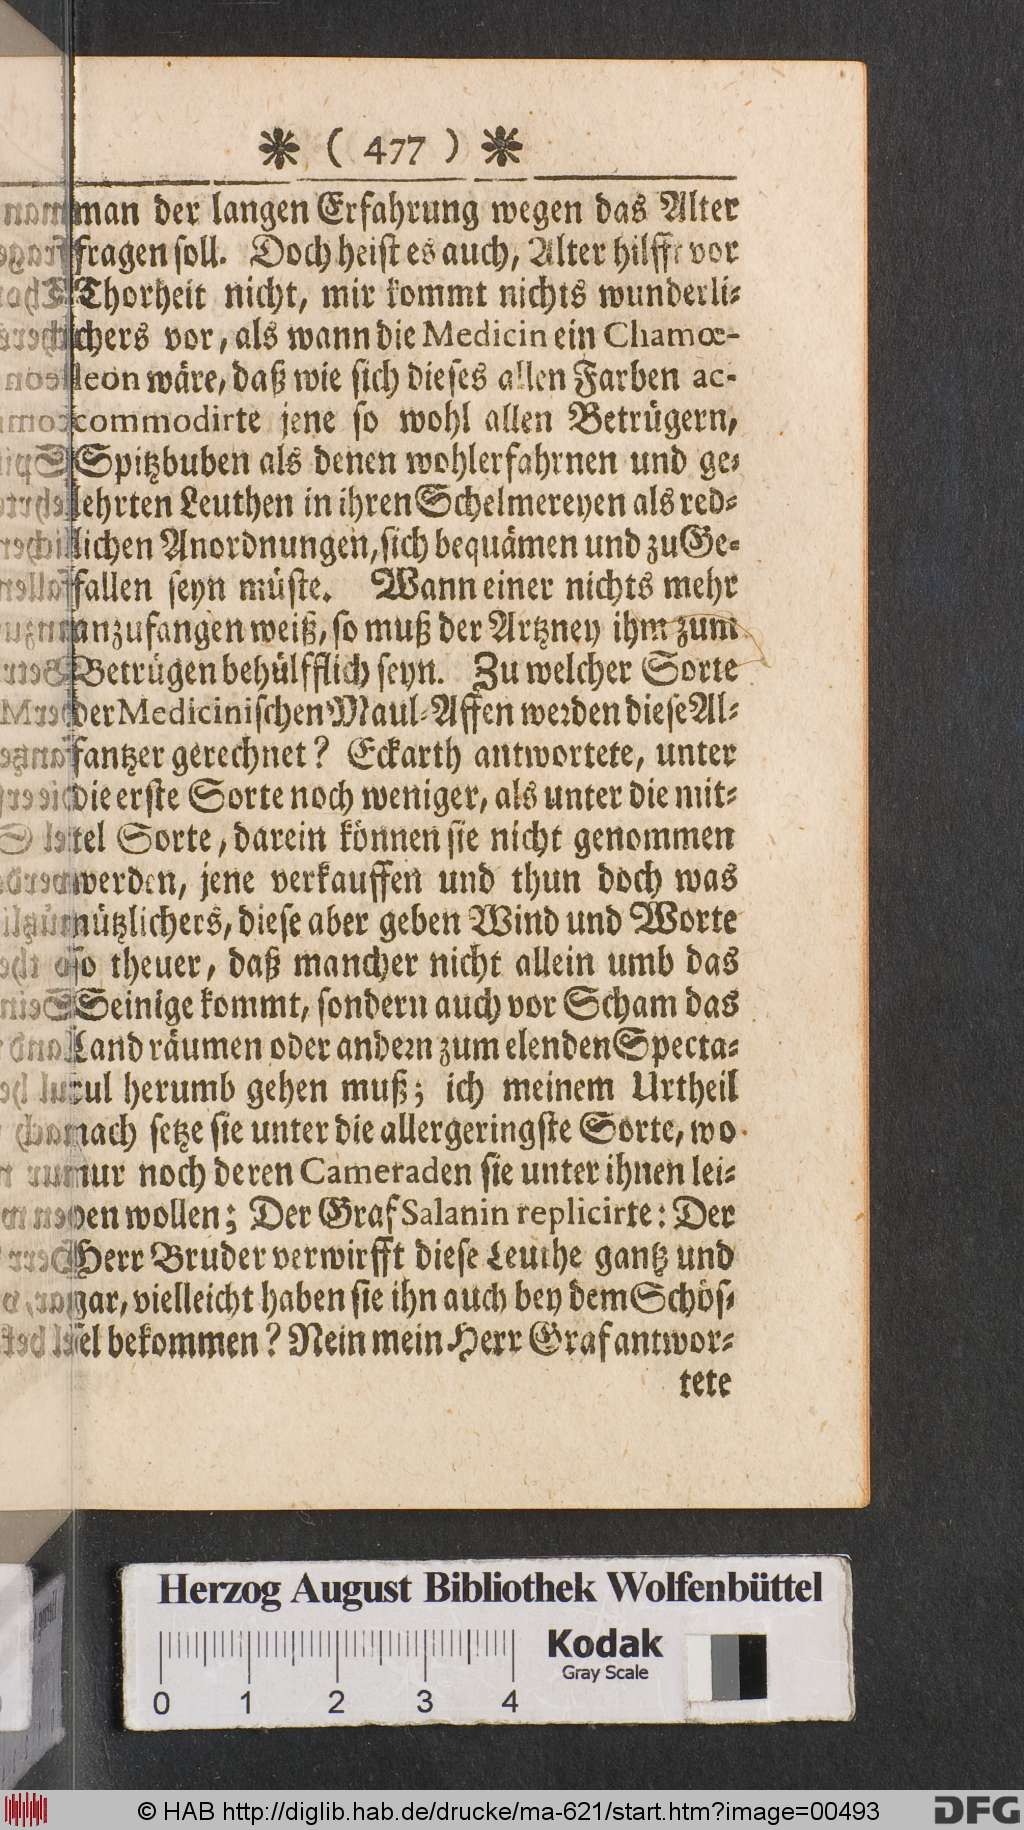 * ( 477 ) *
man der langen Erfahrung wegen das Alter
fragen soll. Doch heist es auch, Alter hilfft vor
Thorheit nicht, mir kommt nichts wunderli⸗
chers vor, als wann die Medicin ein Chamœ-
leon wäre, daß wie sich dieses allen Farben ac-
commodirte jene so wohl allen Betrügern,
Spitzbuben als denen wohlerfahrnen und ge⸗
lehrten Leuthen in ihren Schelmereyen als red⸗
lichen Anordnungen, sich bequämen und zu Ge⸗
fallen seyn müste. Wann einer nichts mehr
anzufangen weiß, so muß der Artzney ihm zum
Betrügen behülfflich seyn. Zu welcher Sorte
der Medicinischen Maul⸗Affen werden diese Al⸗
fantzer gerechnet? Eckarth antwortete, unter
die erste Sorte noch weniger, als unter die mit⸗
tel Sorte, darein können sie nicht genommen
werden, jene verkauffen und thun doch was
nützlichers, diese aber geben Wind und Worte
so theuer, daß mancher nicht allein umb das
Seinige kommt, sondern auch vor Scham das
Land räumen oder andern zum elenden Specta⸗
cul herumb gehen muß; ich meinem Urtheil
nach setze sie unter die allergeringste Sorte, wo
nur noch deren Cameraden sie unter ihnen lei⸗
den wollen; Der Graf Salanin replicirte: Der
Herr Bruder verwirfft diese Leuthe gantz und
gar, vielleicht haben sie ihn auch bey dem Schös⸗
sel bekommen? Nein mein Herr Graf antwor⸗
tete
Herzog August Bibliothek Wolfenbüttel
Kodak
Gray Scale
0 1 2 3 4
© HAB http://diglib.hab.de/drucke/ma-621/start.htm?image=00493
DFG